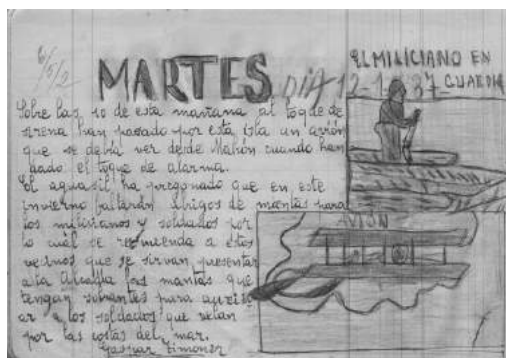 MARTES DIA 12-1-37
EL MILICIANO EN
GUARDIA
Sobre las 10 de esta mañana al toque de
sirena han pasado por esta isla un avión
que se debía ver desde Mahón cuando han
dado el toque de alarma.
El aguasil ha pregonado que en este
invierno faltarán abrigos de mantas para
los milicianos y soldados por
lo cuál se recomienda a estos
vecinos que se sirvan presentar
a la Alcaldía las mantas que
tengan sobrantes para auxili-
ar a los soldados que velan
por las costas del mar.
Gaspar Simonet
AVIÓN